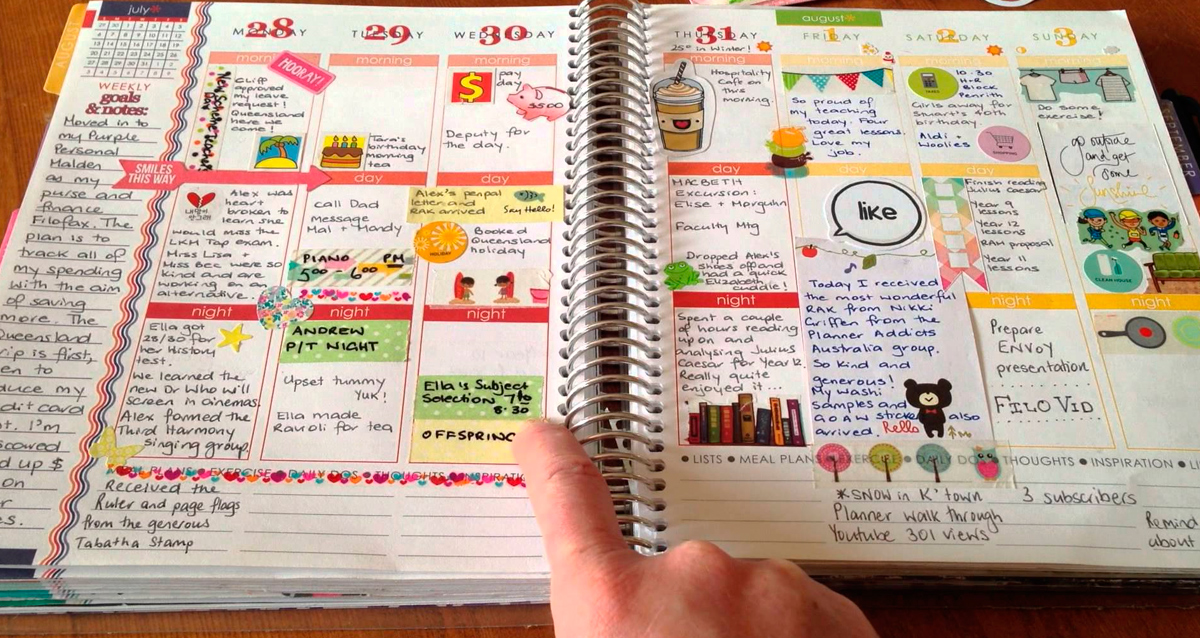 july*
WEEKLY
goals
& notes:
Moved in to
my Purple
Personal
Malden
as my
purse and
finance
Filofax. The
plan is to
track all of
my spending
with the aim
of saving
more. The
Queensland
trip is first
duce my
dit card
I'm
scoured
d up $
on
SMILES
THIS WAY
MONDAY
28
HOORAY!
Cliff
approved
my leave
request!
Queensland
here we
come!
Alex was
heart
broken to
learn she
would miss the
LKM Tap exam.
Miss Lisa +
Miss Bec were so
kind and are
working on an
alternative.
night
Ella got
25/30 for
her History
test.
We learned the
new Dr Who will
screen in cinemas.
Alex formed the
Third Harmony
singing group.
TUESDAY
29
morning
Tara's
birthday
morning
tea
day
call Dad
Message
Mal + Mandy
PIANO PM
5:00 - 6:00
night
ANDREW
P/T NIGHT
Upset tummy
YUK!
Ella made
Ravioli for tea
WEDNESDAY
30
morning
$
pay
day
$500
Deputy for
the day.
Alex's penpal
letter and
RAK arrived
Say Hello!
Booked
Queensland
holiday
night
Ella's Subject
Selection 7 to
8:30
OFFSPRING
MEAL PLANS • EXERCISE • DAILY DOS • THOUGHTS • INSPIRATI
Received the
Ruler and page flags
from the generous
Tabatha Stamp
THURSDAY
31
25° in Winter!
morning
Hospitality
Cafe on
this
morning.
day
MACBETH
Excursion:
Elise + Morguhn
Faculty Mtg
Dropped Alex's
shoes off and
had a quick
Elizabeth
cuddle!
night
Spent a couple
of hours reading
up on and
analysing Julius
Caesar for Year 12.
Really quite
enjoyed it...
august*
FRIDAY
1
morning
So proud of
my teaching
today. Four
great lessons.
Love my
job.
like
Today I received
the most wonderful
RAK from Nikki
Griffen from the
Planner Addicts
Australia group.
So kind and
generous!
My washi
Samples and
AOAW stickers also
arrived.
Hello
SATURDAY
2
morning
10:30
H+R
Block
Penrith
Girls away for
Stuart's 40th
birthday
Aldi +
Woolies
day
Finish reading
Julius Caesar
Year 9
lessons
Year 12
lessons
RAM proposal
Year 11
lessons
night
Prepare
ENVOY
presentation
FILO VID
SUNDAY
3
Do some
exercise!
go outside
and get
some
Sunshine
CLEAN HOUSE
night
• LISTS • MEAL PLANS • EXERCISE • DAILY DOS • THOUGHTS • INSPIRATION • LI
*SNOW in K'town
Planner walk through
Youtube 301 views
3 subscribers
Remind
about